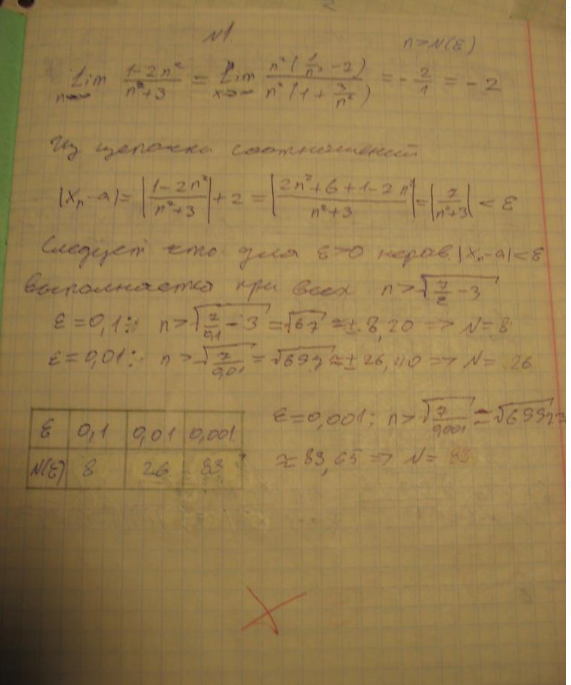 №1
n>N(ε)
lim n→∞ (1-2n²)/(n²+3) = lim x→∞ n²(1/n² -2)/n²(1+3/n²) = -2/1 = -2
Из цепочки соотношений
|Xn-a|=|(1-2n²)/(n²+3)|+2=|(2n²+6+1-2n²)/(n²+3)|=|7/(n²+3)|<ε
Следует что для ε>0 нерав |Xn-a|<ε
выполнается при всех n>√(7/ε -3)
ε=0,1: n>√(7/0,1 -3)=√67≈±8,20 => N=8
ε=0,01: n>√(7/0,01)=√697≈±26,40 => N=26
ε=0,001: n>√(7/0,001)=√6997
≈83,65 => N=83
ε 0,1 0,01 0,001
N(ε) 8 26 83